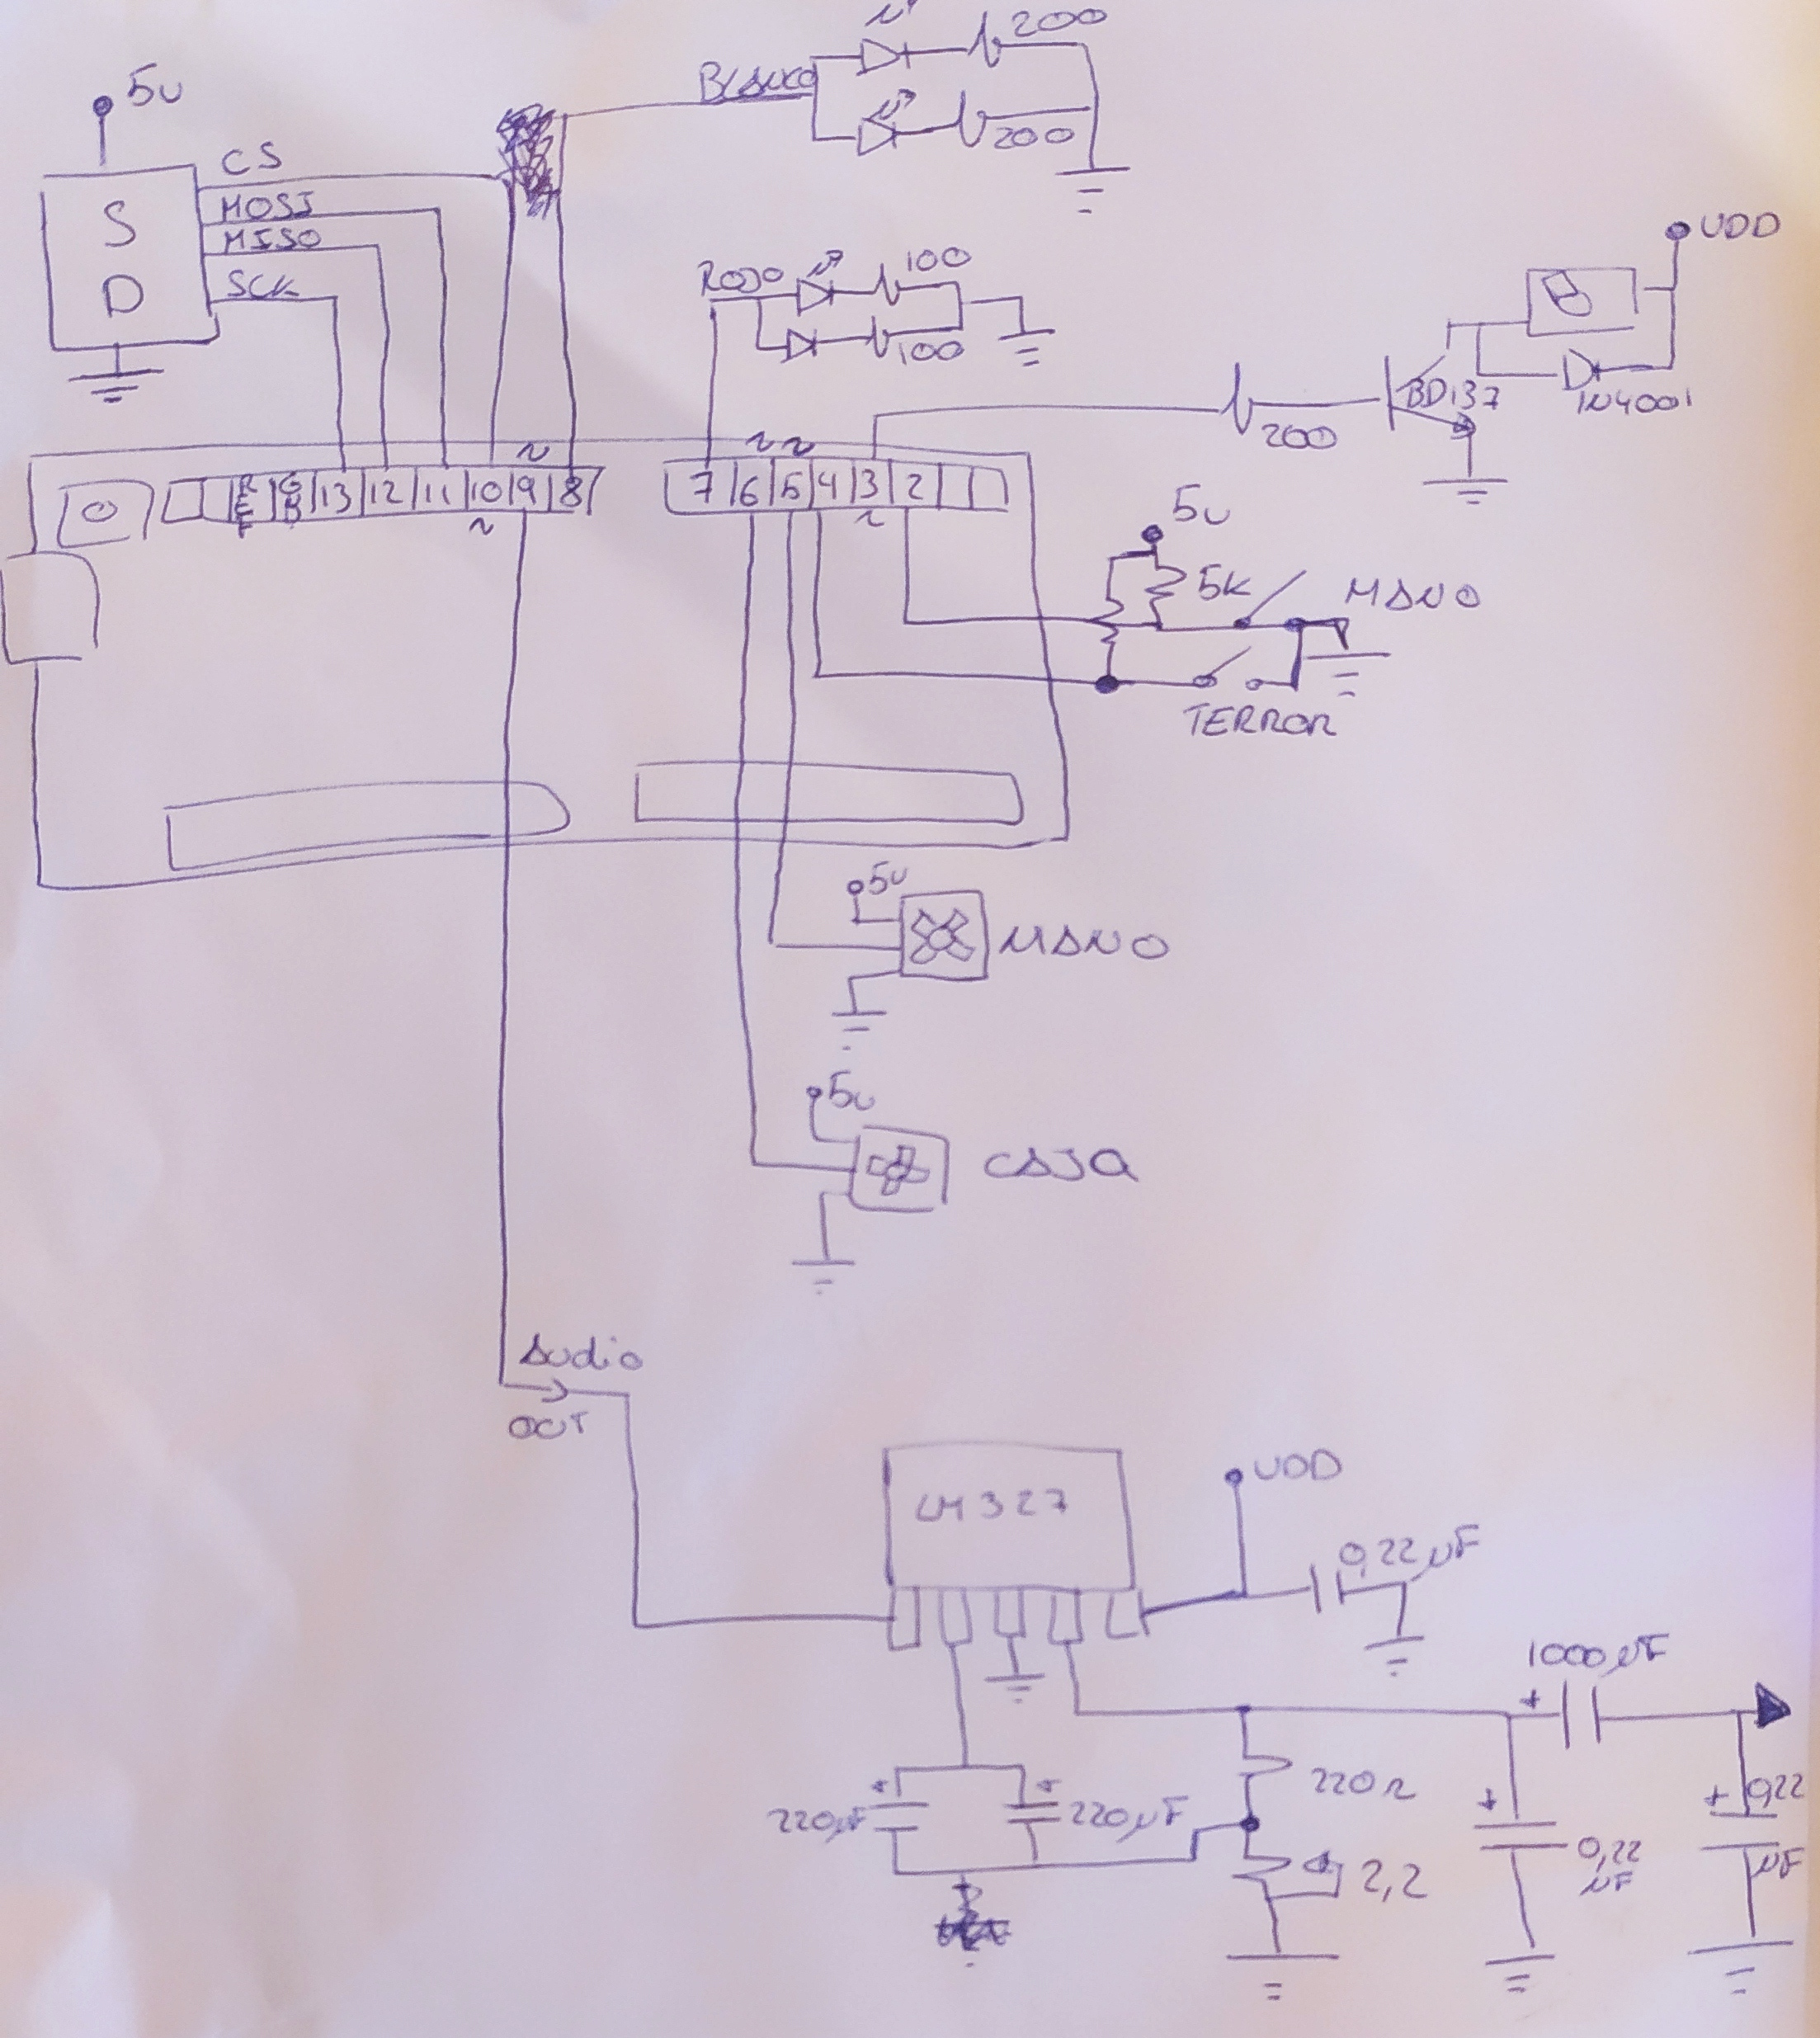 5v
CS
MOSI
MISO
SCK
S
D
BLANCO
200
200
ROJO
100
100
VDD
200
BD137
1N4001
REF
GND
13
12
11
10
9
8
7
6
5
4
3
2
~
~
~
~
~
5v
5K
MANO
TERROR
5v
MANO
5v
CAJA
Audio
OUT
LM327
VDD
0,22µF
1000µF
+
+
220µF
+
220µF
220Ω
2,2
+
0,22
µF
+
0,22
µF